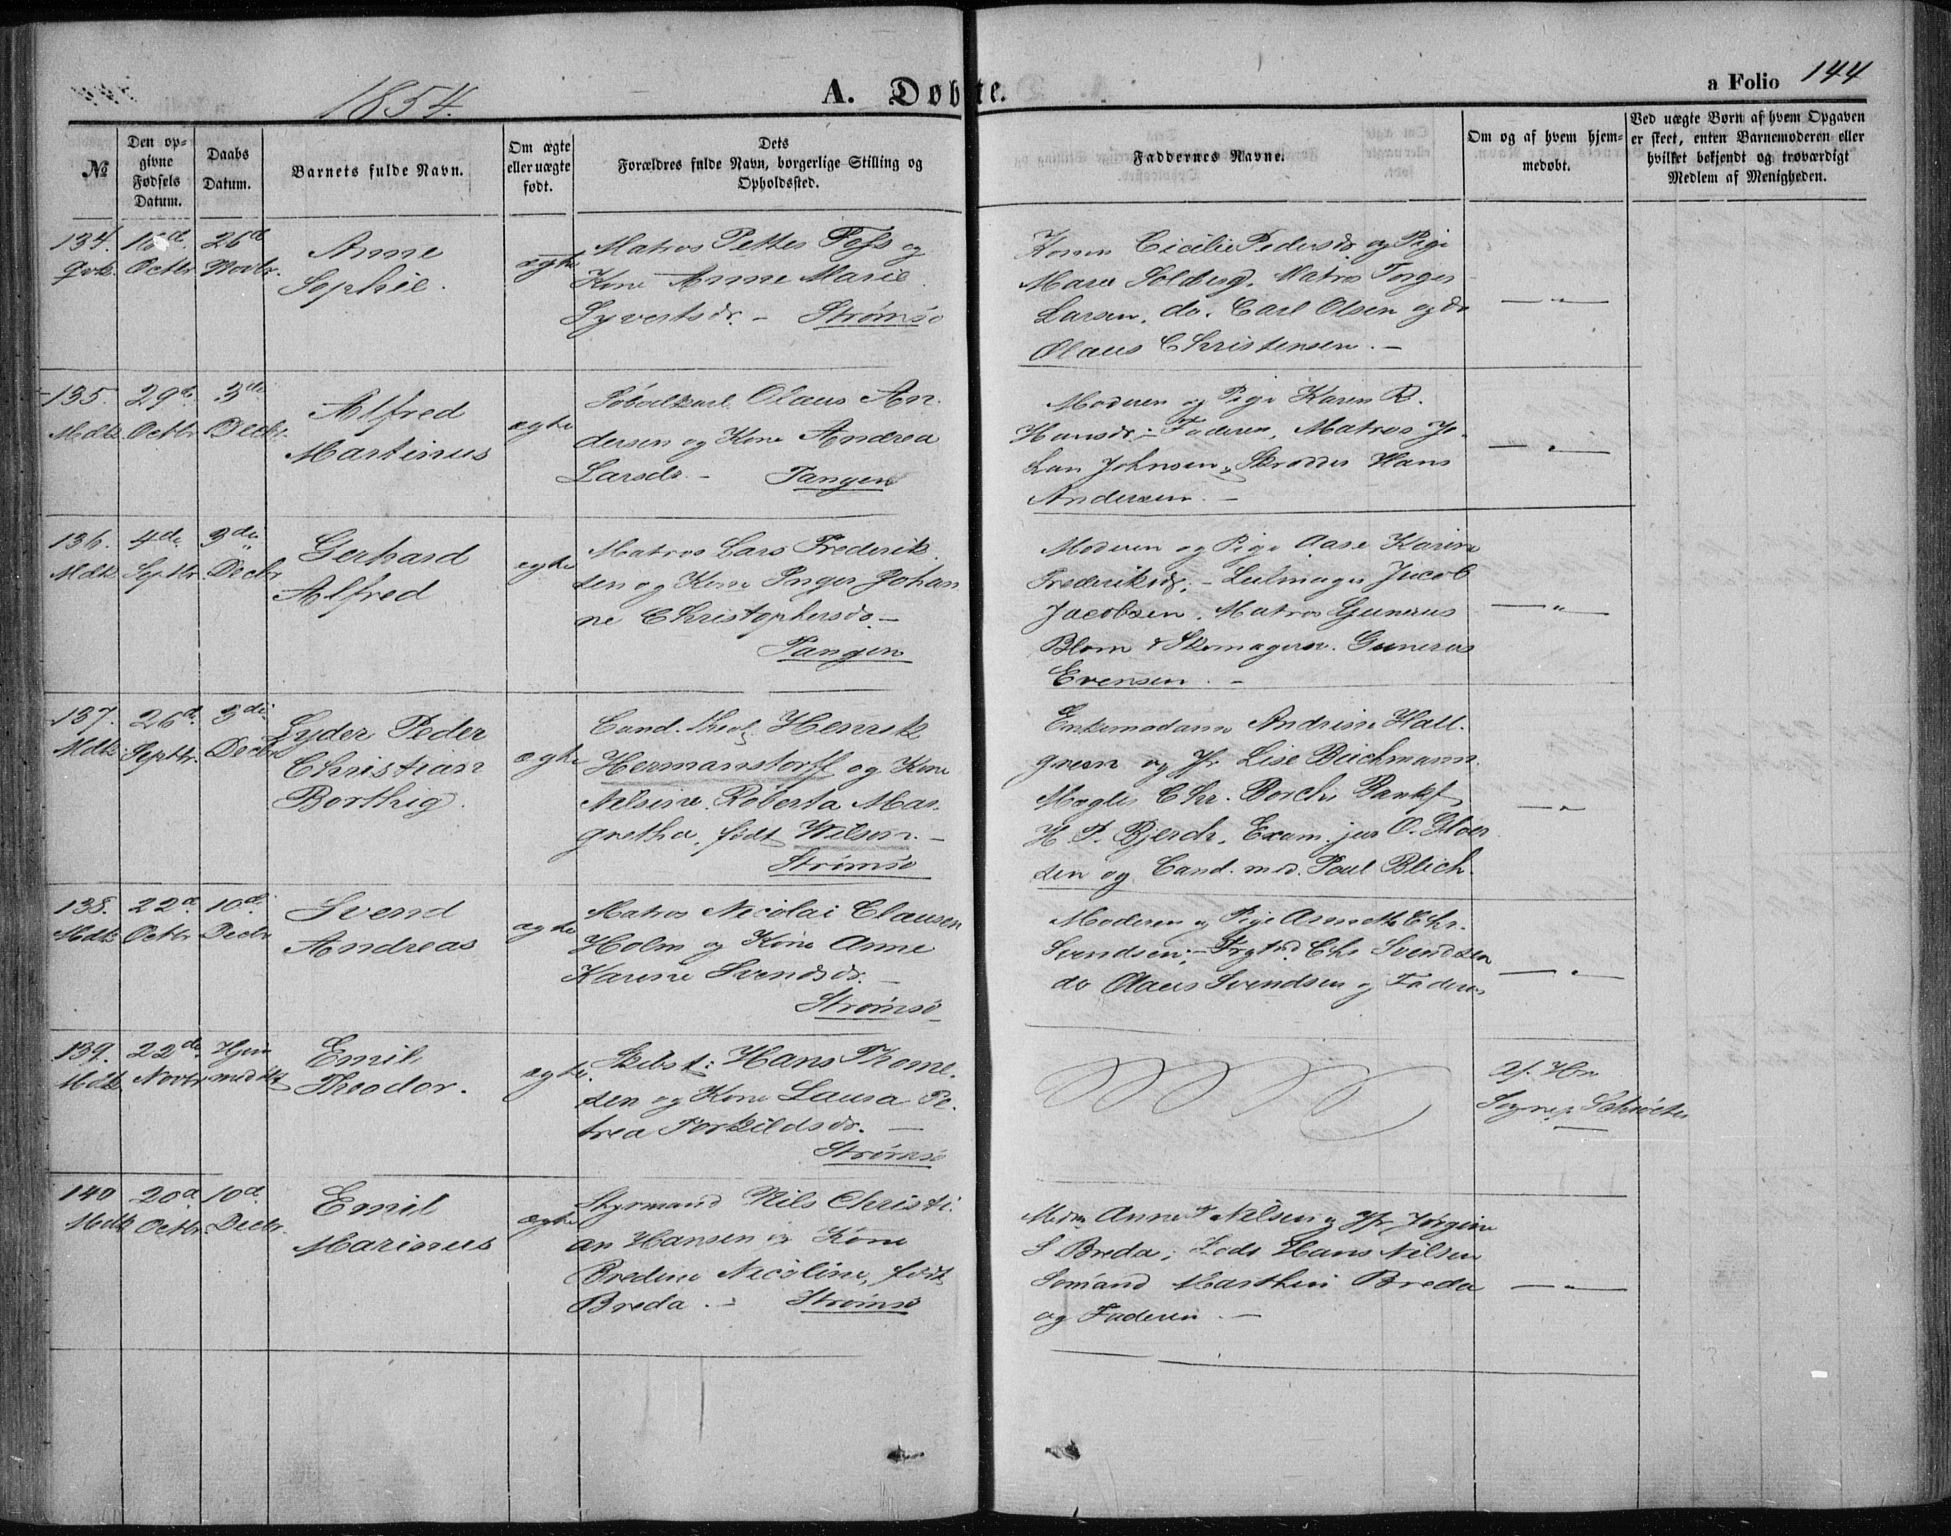 1854.
A. Døbte.
a Folio 144
№
Den op-
givne
Fødsels
Datum.
Daabs
Datum.
Barnets fulde Navn.
Om ægte
eller uægte
født.
Dets
Forældres fulde Navn, borgerlige Stilling og
Opholdssted.
Faddernes Navne.
Om og af hvem hjem-
medøbt.
Ved uægte Børn af hvem Opgaven
er skeet, enten Barnemoderen eller
hvilket bekjendt og troværdigt
Medlem af Menigheden.
134. Octbr. 26d Novbr.
Anne
Sophie.
ægte
Matros Petter Foss og
Kone Anne Marie
Syvertsdr. - Strømsø
Konen Cicilie Pedersdr. og Pige
Maren Solberg. Matros Torger
Larsen. do. Carl Olsen og do
Olaus Christensen. -
— " —
135. Mdk. 29d. Octbr. 3die Decbr.
Alfred
Martinus
ægte
Olaus An-
dersen og Kone Andrea
Larsdr. - Tangen
Moderen og Pige Karen R.
Hansdr; - Faderen, Matros Jo-
han Johnsen, Skrædder Hans
Andersen. -
— " —
136. Mdk. 4de Septbr. 3die Decbr.
Gerhard
Alfred
ægte
Matros Lars Frederik-
sen og Kone Inger Johan
ne Christophersdr. -
Tangen
Moderen og Pige Aase Karine
Frederiksdr. - Seilmager Jacob
Jacobsen. Matros Gunerus
Blom & Skomagersv. Gunerus
Evensen. -
— " —
137. Mdk. 26d. Septbr. 3die Decbr.
Lyder Peder
Christian
Borthig.
ægte
Cand. theol. Henrik
Hermanstorff og Kone
Nilsine Roberta Mar-
gretha, født Wilson. -
Strømsø
Enkemadame Andrine Hall-
green og Jfr Lise Bichmann.
Mægler Chr. Borch,
H. P. Bjerch, Exam. jur O. Gloer
sen og Cand. med. Poul Blich.
— " —
138. Mdk. 22d. Octbr. 10d. Decbr
Svend
Andreas
ægte
Matros Nicolai Clausen
Holm og Kone Anne
Karine Svendsdr. -
Strømsø
Moderen og Pige Chr.
Svendsen; - Chr Svendsen
do Olaus Svendsen og Faderen
— " —
139. Mdk 22de. Novbr Hjem
medøbt
Emil
Theodor.
ægte.
Hans Thome-
sen og Kone Laura Pe-
trea Torkildsdr. -
Strømsø
af Hr
Sognep. Schröeter
140 Mdk 20d Octbr. 10d. Decbr.
Emil
Marinus
ægte
Styrmand Nils Christi-
an Hansen og Kone
Bredine Nicoline, født
Breda. - Strømsø
Madm Anne Nilsen og Jfr Jørgine
S Breda; Lods Hans Nilsen
Sømand Marthin Breda
og Faderen. -
— " —